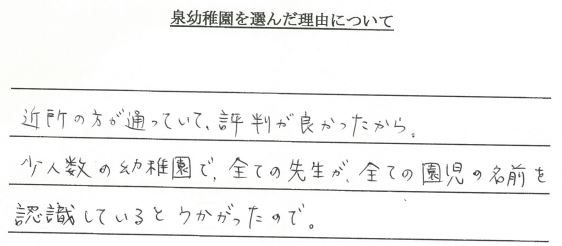 泉幼稚園を選んだ理由について
近所の方が通っていて、評判が良かったから。
少人数の幼稚園で、全ての先生が、全ての園児の名前を
認識しているとうかがったので。